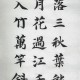 落三秋葉能
月花過江千
入竹萬竿斜